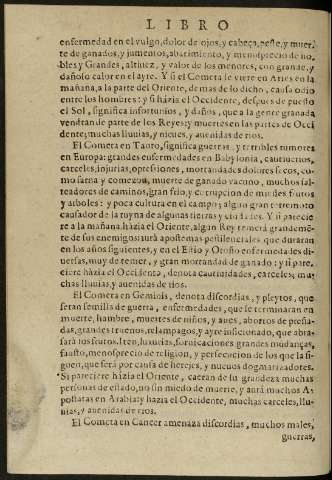 LIBRO
enfermedad en el vulgo, dolor de ojos, y cabeça, peste, y muer-
te de ganados, y jumentos, abatimiento, y menosprecio de no-
bles y Grandes, altiuez, y valor de los menores, con grande, y
dañoso calor en el ayre. Y si el Cometa se viere en Aries en la
mañana, a la parte del Oriente, de mas de lo dicho, causa odio
entre los hombres: y si házia el Occidente, despues de puesto
el Sol, significa infortunios, y daños, que a la gente granada
vendran de parte de los Reyes: y muertes en las partes de Occi
dente; muchas lluuias, y nieues, y auenidas de rios.
El Cometa en Tauro, significa guerras, y terribles rumores
en Europa: grandes enfermedades en Babylonia, cautiuerios,
carceles, injurias, opresiones, mortandades dolores secos, co-
mo sarna y comezon, muerte de ganado vacuno, muchos sal-
teadores de caminos, gran frio, y corrupcion de muchos frutos
y arboles: y poca cultura en el campo; algun gran terremoto
causador de la ruyna de algunas tierras y ciudades. Y si parecie
re a la mañana házia el Oriente, algun Rey temerá grandemẽ-
te de sus enemigos: aurá apostemas pestilenciales, que duraran
en los años siguientes, y en el Estio y Otoño enfermedades di-
uersas, muy de temer, y gran mortandad de ganado: y si pare-
ciere házia el Occidente, denota cautiuidades, carceles; mu-
chas lluuias, y auenidas de rios.
El Cometa en Geminis, denota discordias, y pleytos, que
seran semilla de guerra, enfermedades, que se terminaran en
muerte, hambre, muertes de niños, y aues, abortos de preña-
das, grandes truenos, relampagos, y ayre inficionado, que abra-
sará los frutos. Iten, luxurias, fornicaciones grandes mudanças,
fausto, menosprecio de religion, y persecucion de los que la si-
guen, que será por causa de herejes, y nueuos dogmatizadores.
Si pareciere házia el Oriente, caeran de su grandeza muchas
personas de estado, no sin miedo de muerte, y aurá muchos A-
postatas en Arabia: y házia el Occidente, muchas carceles, llu-
uias, y auenidas de rios.
El Cometa en Cancer amenaza discordias, muchos males,
guerras,